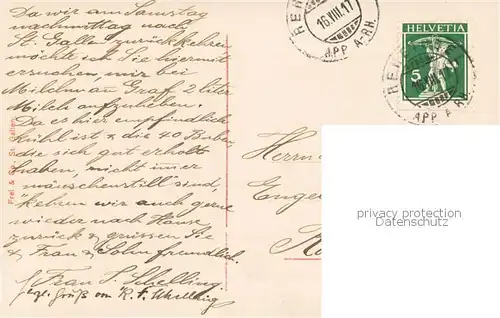 Da wir am Samstag
nachmittag nach
St. Gallen zurückkehren
möchte ich Sie hiermit
ersuchen, mir bei
Milchman Graf 2 liter
Milch aufzuheben.
Da es hier empfindlich
kühl ist & die 40 Buben,
die sich gut erholt
haben, nicht imer
mäuschenstill sind,
kehren wir auch gerne
wieder nach Hause
zurück & grüssen Sie
& Frau & Sohn freundlich.
Frau S. Schelling
Gruß von
Frei & St. Gallen
REH
16.VIII.17
APP A.RH.
HELVETIA
5
REH
APP A.RH.
Herrn
privacy protection
Datenschutz